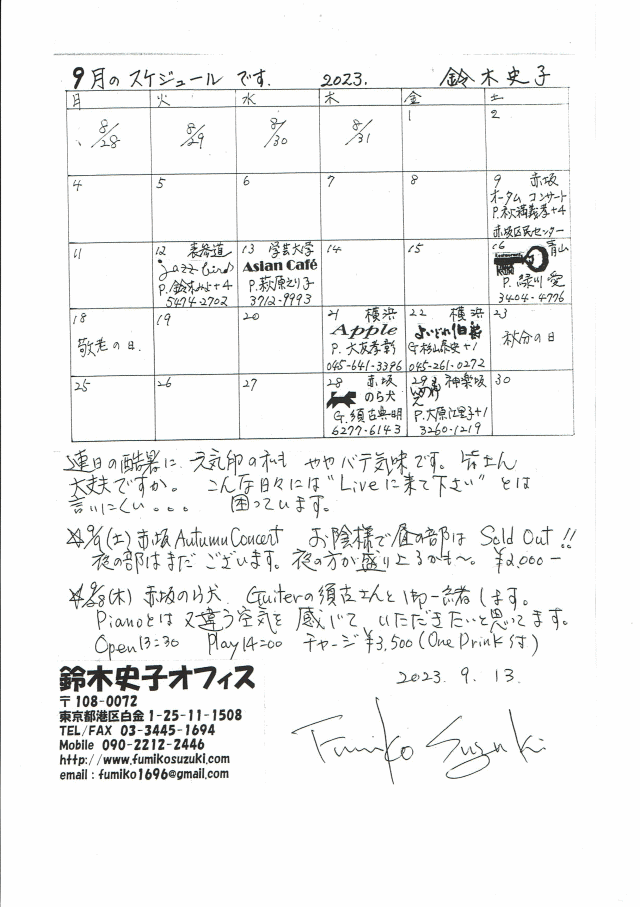 9月のスケジュール です. 2023. 鈴木史子
日 火 水 木 金 土
8/28 8/29 8/30 8/31 1 2
4 5 6 7 8 9 赤坂
オータム コンサート
P.秋満義孝+4
赤坂区民センター
11
12 表参道
jazz bird
P.鈴木みよ+4
5474-2702
13 学芸大学
Asian Café
P.萩原とり子
3712-9993
14 15
16 青山
P.緑川愛
3404-4776
18
敬老の日.
19 20
21 横浜
Apple
P.大友孝彰
045-641-3396
22 横浜
よいどれ伯爵
G.杉山泰史+1
045-261-0272
23
秋分の日
25 26 27
28 赤坂
のら犬
G.須古典明
6277-6143
29 神楽坂
P.大原江里子+1
3260-1219
30
連日の酷暑に 元気印の私も ややバテ気味です。皆さん
大丈夫ですか。 こんな日々には"Liveに来て下さい"とは
言いにくい。。。 困っています。
☆9/9(土)赤坂Autumn Concert お陰様で昼の部は Sold Out!!
夜の部はまだございます。夜の方が盛り上るかも〜。¥2,000-
☆9/28(木) 赤坂のら犬. Guiterの須古さんと御一緒します。
Pianoとは又違う空気を感じていただきたいと思ってます。
Open13:30 Play14:00 チャージ¥3,500(One Drink付)
鈴木史子オフィス
〒108-0072
東京都港区白金1-25-11-1508
TEL/FAX 03-3445-1694
Mobile 090-2212-2446
http://www.fumikosuzuki.com/
email : fumiko1696@gmail.com
2023. 9. 13.
Fumiko Suzuki